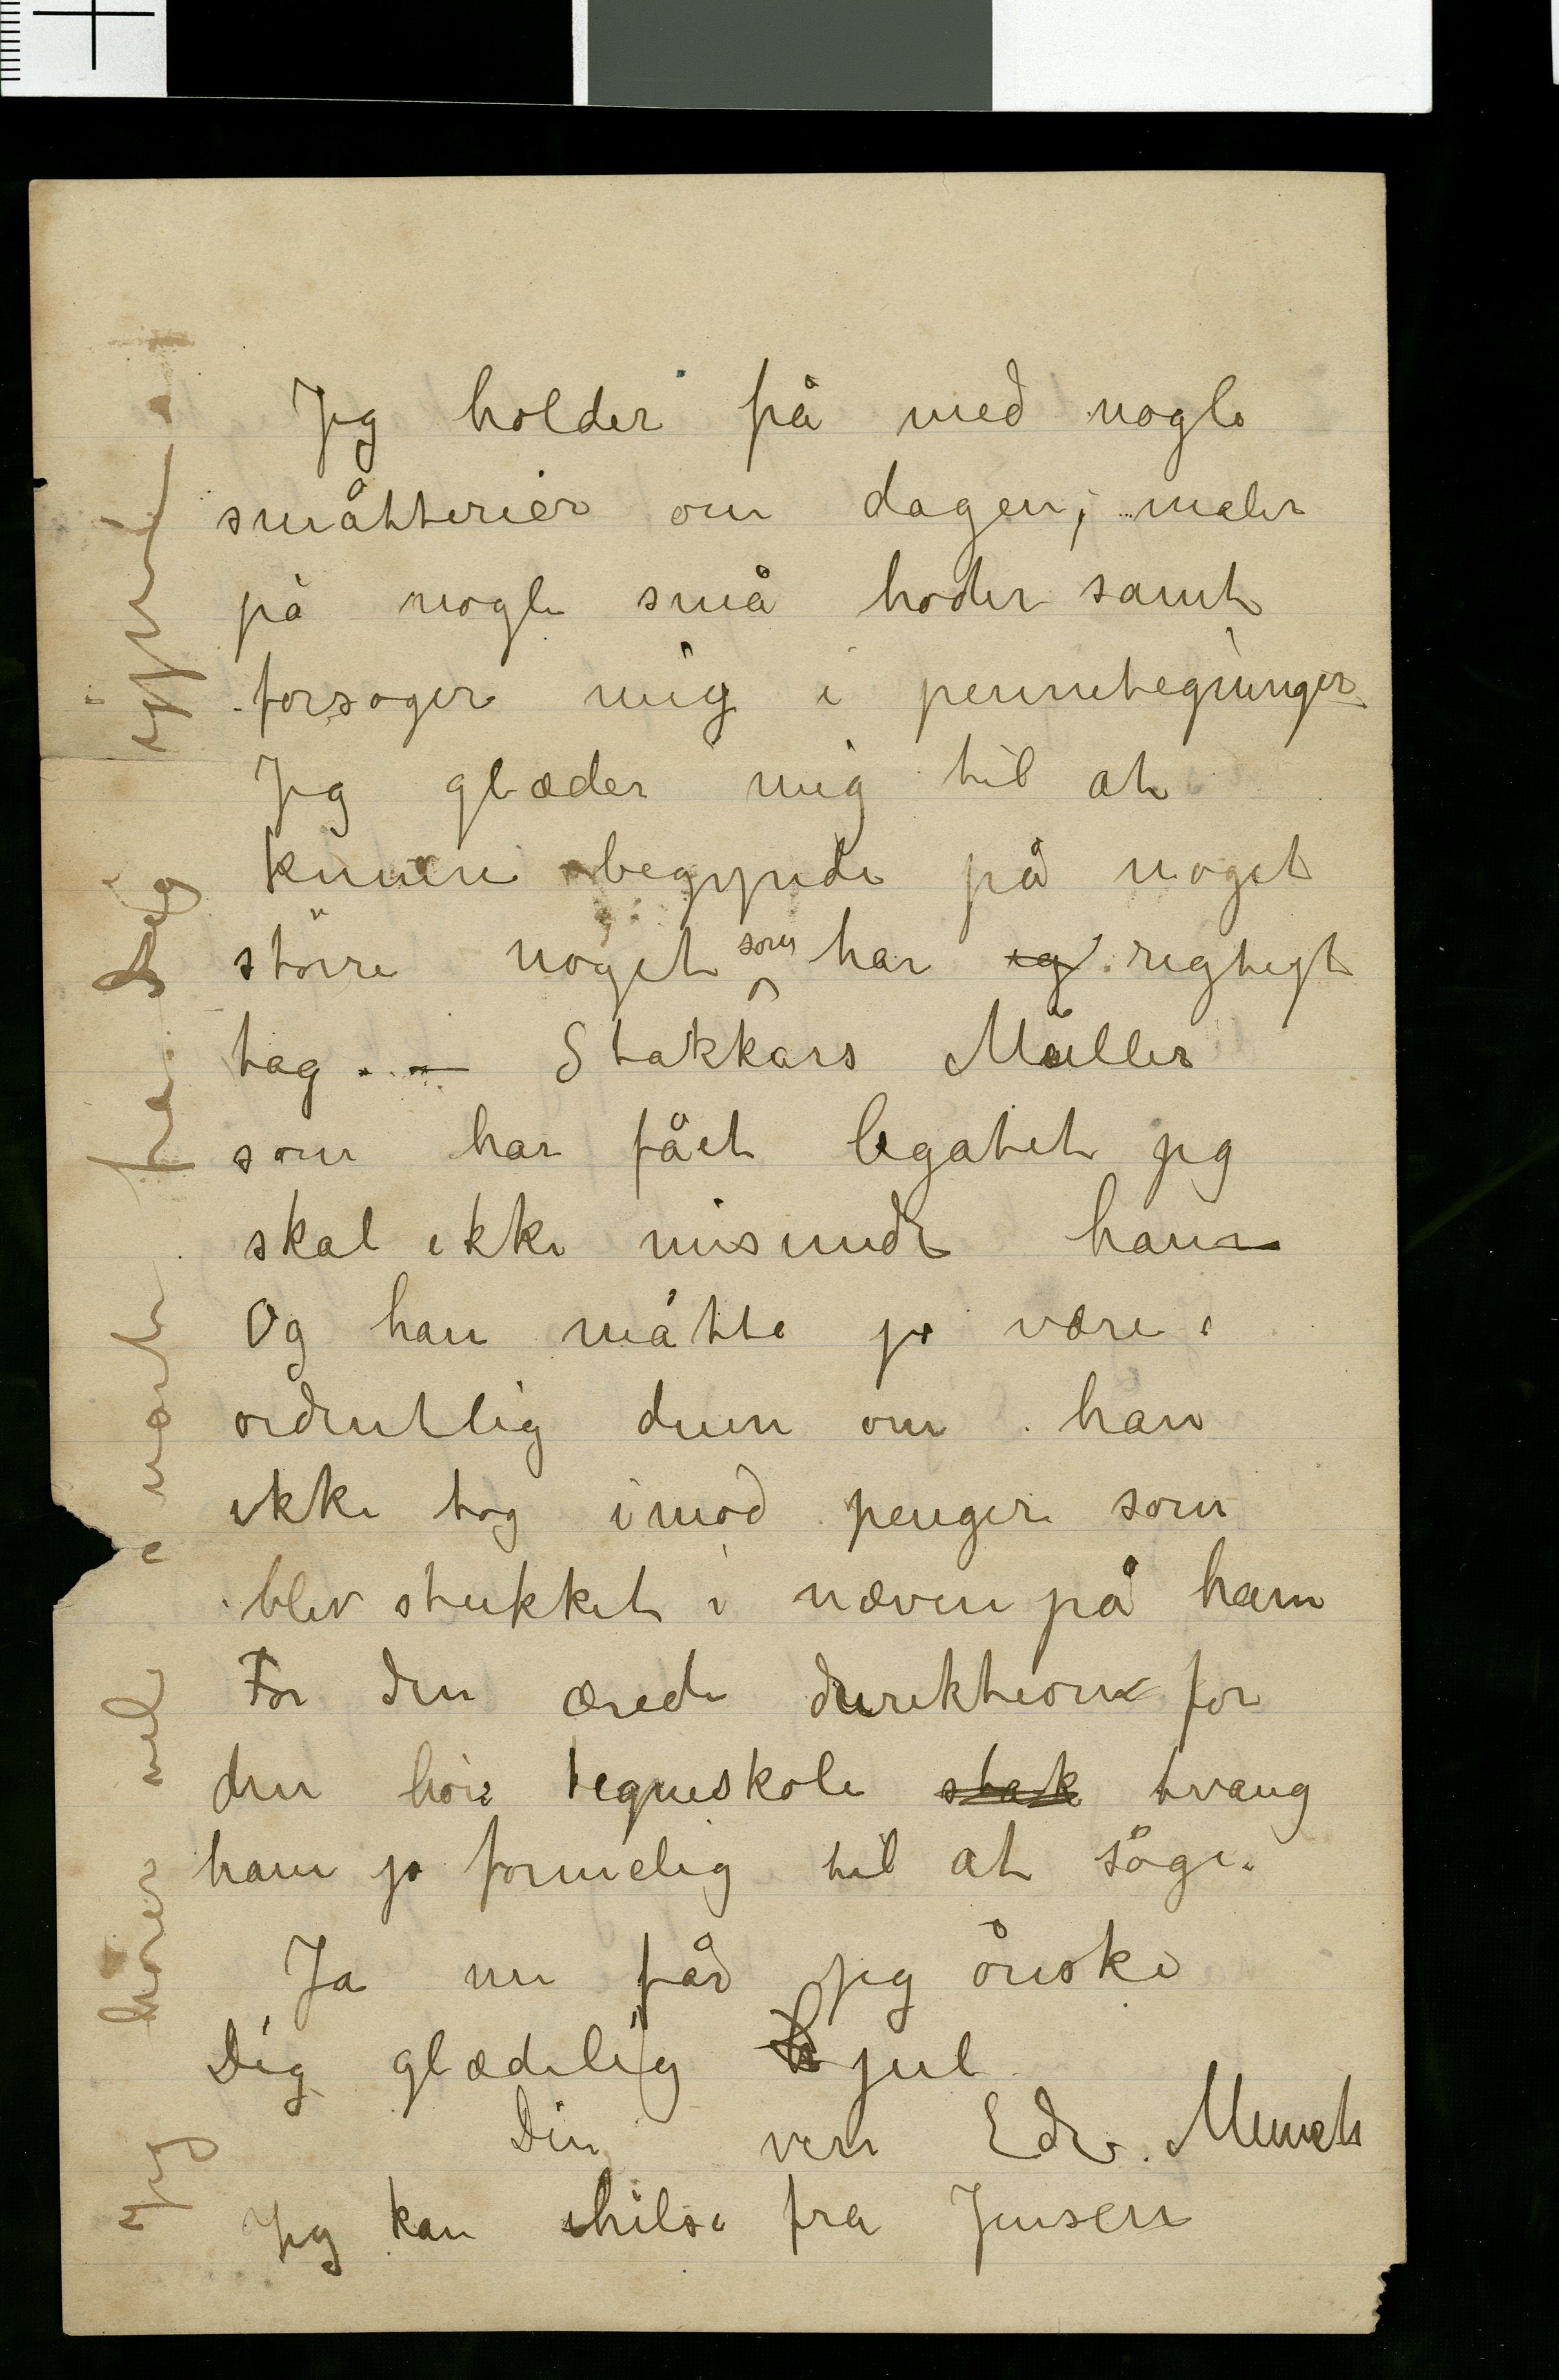 Jeg holder på med nogle
småtterier om dagen; maler
på nogle små hoder samt
forsøger mig i pennetegninger
Jeg glæder mig til at
kunne begynde på noget
större noget som har eg rigtigt
tag. — Stakkars Müller
som har fået legatet jeg
skal ikke misunde ham
Og han måtte jo være
ordentlig dum om han
ikke tog imod penger som
blev stukket i næven på ham
For den ærede direktion for
den höie tegneskole stak tvang
ham jo formelig til at söge.
Ja nu får jeg önske
Dig glædelig jul
Din ven Edv. Munch
Jeg kan hilse fra Jensen
Jeg hører vel snart fra Dig igjen